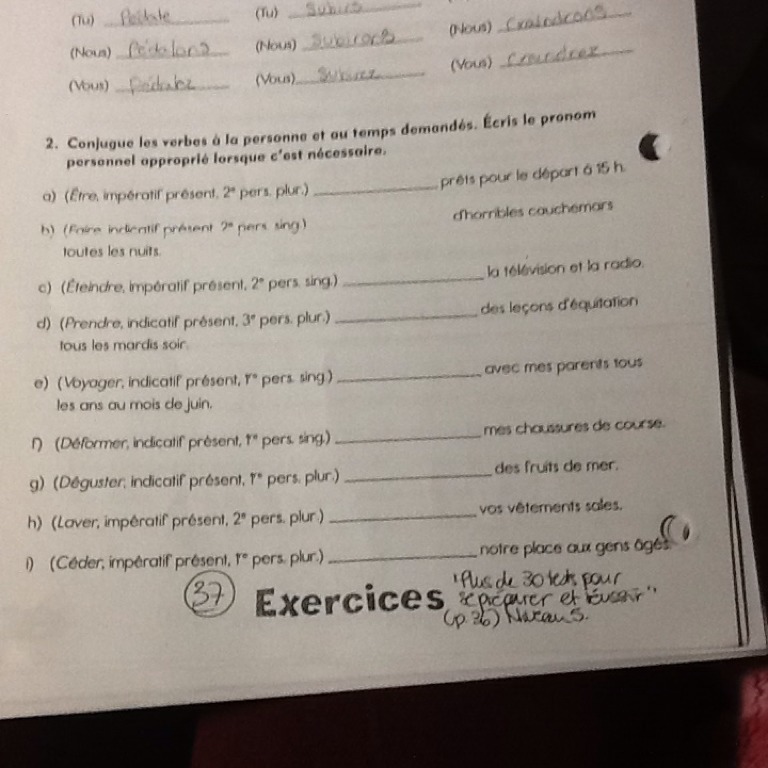 (Tu) Pédale (Tu) Subis
(Nous) Pédalons (Nous) Subirons (Nous) Craindrons
(Vous) Pédalez (Vous) Subirez (Vous) Craindrez
2. Conjugue les verbes à la personne et au temps demandés. Écris le pronom
personnel approprié lorsque c'est nécessaire.
a) (Être, impératif présent, 2e pers. plur.) prêts pour le départ à 15 h.
b) (Faire, indicatif présent, 2e pers. sing.) d'horribles cauchemars
toutes les nuits.
c) (Éteindre, impératif présent, 2e pers. sing.) la télévision et la radio.
d) (Prendre, indicatif présent, 3e pers. plur.) des leçons d'équitation
tous les mardis soir.
e) (Voyager, indicatif présent, 1re pers. sing.) avec mes parents tous
les ans au mois de juin.
f) (Déformer, indicatif présent, 1re pers. sing.) mes chaussures de course.
g) (Déguster, indicatif présent, 1re pers. plur.) des fruits de mer.
h) (Laver, impératif présent, 2e pers. plur.) vos vêtements sales.
i) (Céder, impératif présent, 1re pers. plur.) notre place aux gens âgés.
37 Exercices "Plus de 30 tests pour
se préparer et réussir"
(p. 36) Niveau 5.